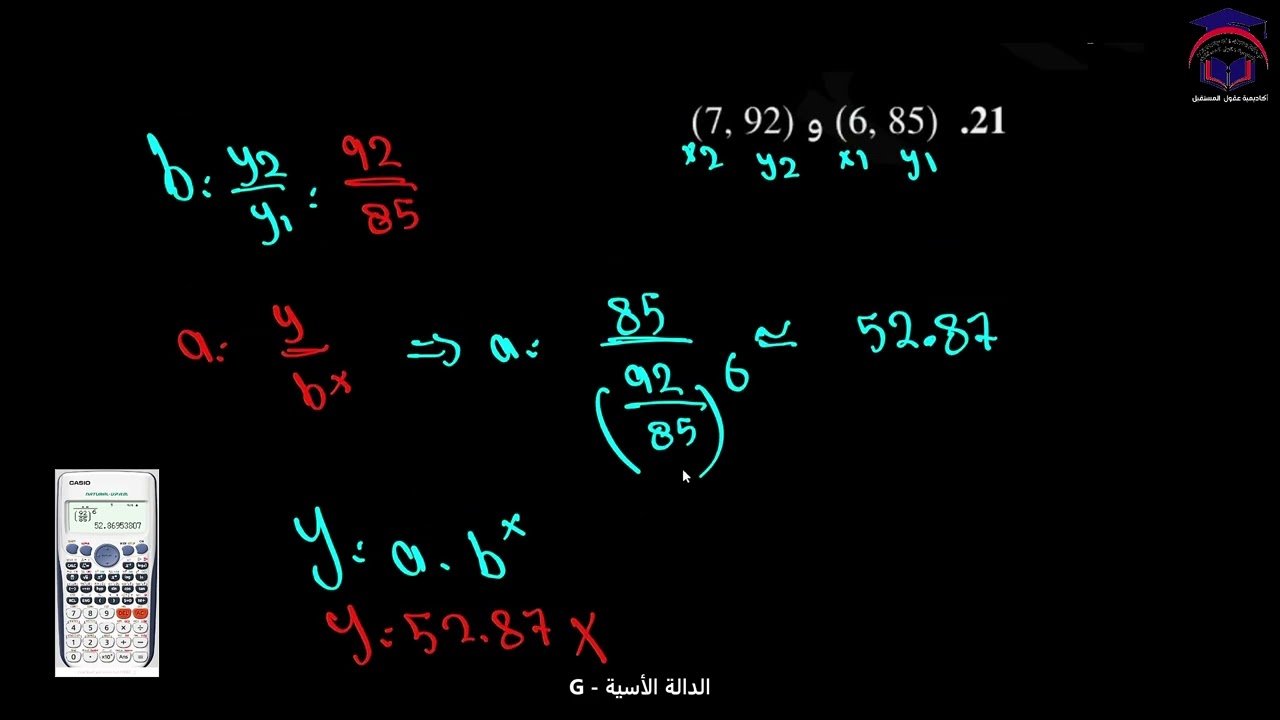 أكاديمية عقول المستقبل
21. (6, 85) و (7, 92)
x2 y2 x1 y1
b = y2/y1 = 92/85
a = y/b^x ⇒ a = 85/(92/85)^6 ≃ 52.87
CASIO
NATURAL-V.P.A.M.
52.86953807
y = a . b^x
y = 52.87 x
الدالة الأسية - G